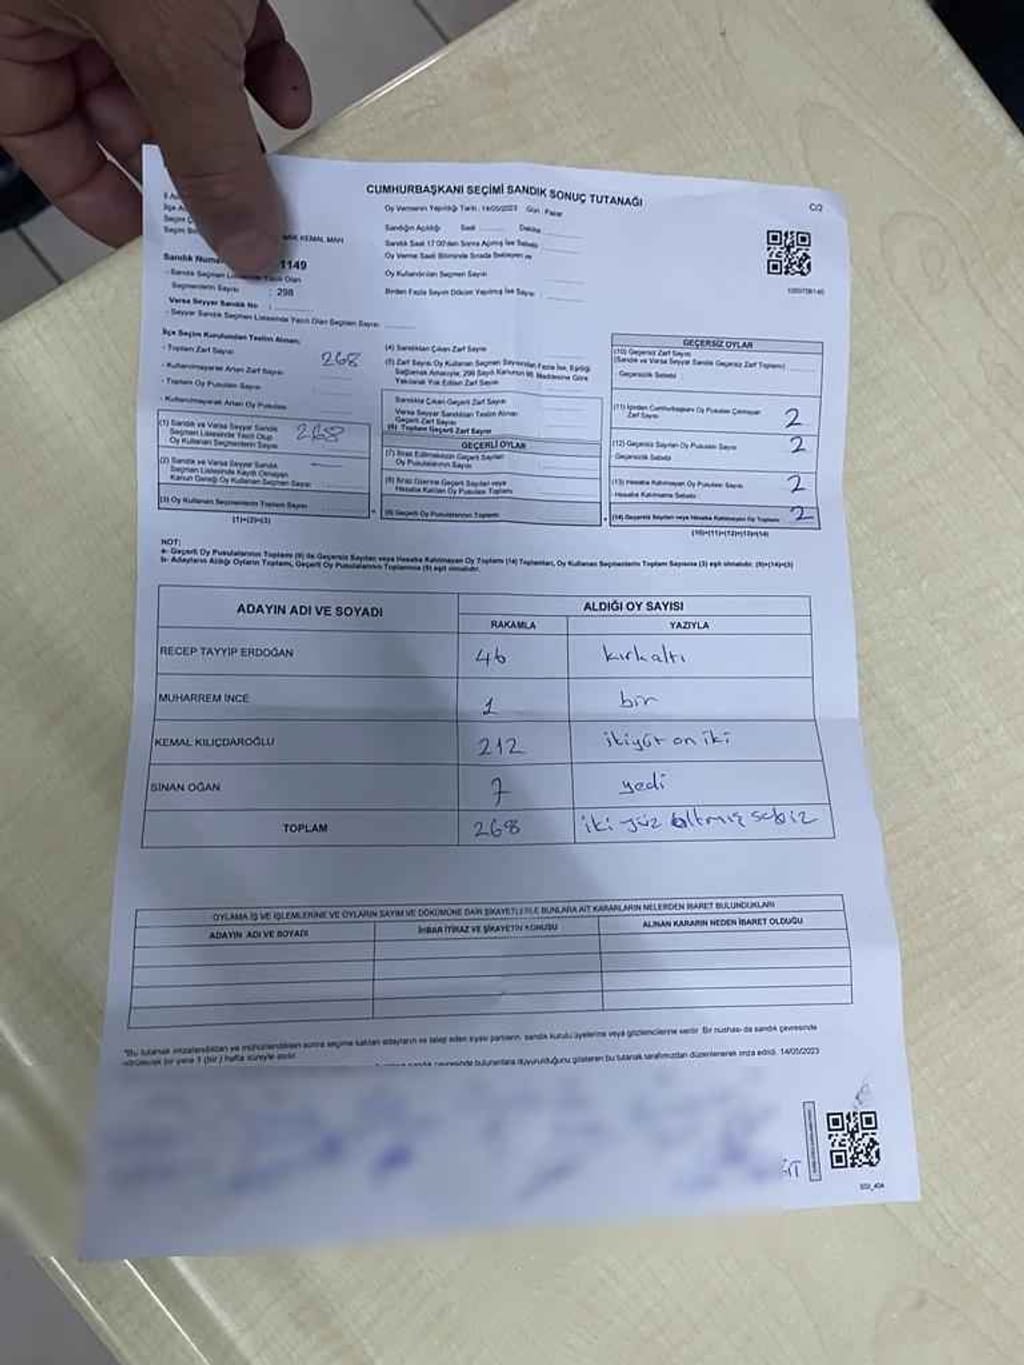 CUMHURBAŞKANI SEÇİMİ SANDIK SONUÇ TUTANAĞI
C/2
Oy Vermenin Yapıldığı Tarih : 14/05/2023 Gün : Pazar
Sandığın Açıldığı Saat Dakika
Sandık Saat 17:00'den Sonra Açılmış İse Sebebi
Oy Verme Saati Bitiminde Sırada Bekleyen ve
Oy Kullandırılan Seçmen Sayısı
Birden Fazla Sayım Döküm Yapılmış İse Sayısı :
KEMAL MAH
Sandık 1149
- Sandık Seçmen Listesinde Yazılı Olan
Seçmenlerin Sayısı : 298
Varsa Seyyar Sandık No :
- Seyyar Sandık Seçmen Listesinde Yazılı Olan Seçmen Sayısı
İlçe Seçim Kurulundan Teslim Alınan;
- Toplam Zarf Sayısı 268
- Kullanılmayarak Artan Zarf Sayısı
- Toplam Oy Pusulası Sayısı
- Kullanılmayarak Artan Oy Pusulası
(1) Sandık ve Varsa Seyyar Sandık
Seçmen Listesinde Yazılı Olup
Oy Kullanan Seçmenlerin Sayısı 268
(2) Sandık ve Varsa Seyyar Sandık
Seçmen Listesinde Kaydı Olmayan
Kanun Gereği Oy Kullanan Seçmen Sayısı
(3) Oy Kullanan Seçmenlerin Toplam Sayısı
(1)+(2)=(3)
(4) Sandıktan Çıkan Zarf Sayısı
(5) Zarf Sayısı Oy Kullanan Seçmen Sayısından Fazla İse, Eşitliği
Sağlamak Amacıyla; 298 Sayılı Kanunun 98. Maddesine Göre
Yakılarak Yok Edilen Zarf Sayısı
Sandıkta Çıkan Geçerli Zarf Sayısı
Varsa Seyyar Sandıktan Teslim Alınan
Geçerli Zarf Sayısı
(6) Toplam Geçerli Zarf Sayısı
GEÇERLİ OYLAR
(7) İtiraz Edilmeksizin Geçerli Sayılan
Oy Pusulalarının Sayısı
(8) İtiraz Üzerine Geçerli Sayılan veya
Hesaba Katılan Oy Pusulası Toplamı
(9) Geçerli Oy Pusulalarının Toplamı
GEÇERSİZ OYLAR
(10) Geçersiz Zarf Sayısı
(Sandık ve Varsa Seyyar Sandık Geçersiz Zarf Toplamı)
Geçersizlik Sebebi :
(11) İçinden Cumhurbaşkanı Oy Pusulası Çıkmayan
Zarf Sayısı 2
(12) Geçersiz Sayılan Oy Pusulası Sayısı 2
Geçersizlik Sebebi
(13) Hesaba Katılmayan Oy Pusulası Sayısı 2
Hesaba Katılmama Sebebi
(14) Geçersiz Sayılan veya Hesaba Katılmayan Oy Toplamı 2
(10)+(11)+(12)+(13)=(14)
NOT:
a- Geçerli Oy Pusulalarının Toplamı (9) ile Geçersiz Sayılan veya Hesaba Katılmayan Oy Toplamı (14) Toplamları, Oy Kullanan Seçmenlerin Toplam Sayısına (3) eşit olmalıdır. (9)+(14)=(3)
b- Adayların Aldığı Oyların Toplamı, Geçerli Oy Pusulalarının Toplamına (9) eşit olmalıdır.
ADAYIN ADI VE SOYADI ALDIĞI OY SAYISI
RAKAMLA YAZIYLA
RECEP TAYYİP ERDOĞAN 46 kırkaltı
MUHARREM İNCE 1 bir
KEMAL KILIÇDAROĞLU 212 ikiyüz on iki
SİNAN OĞAN 7 yedi
TOPLAM 268 iki yüz altmış sekiz
OYLAMA İŞ VE İŞLEMLERİNE VE OYLARIN SAYIM VE DÖKÜMÜNE DAİR ŞİKAYETLERLE BUNLARA AİT KARARLARIN NELERDEN İBARET BULUNDUKLARI
ADAYIN ADI VE SOYADI İHBAR İTİRAZ VE ŞİKAYETİN KONUSU ALINAN KARARIN NEDEN İBARET OLDUĞU
*Bu tutanak imzalandıktan ve mühürlendikten sonra seçime katılan adayların ve talep eden siyasi partilerin, sandık kurulu üyelerine veya gözlemcilerine verilir. Bir nüshası da sandık çevresinde
bir yere 1 (bir) hafta süreyle asılır.
sandık çevresinde bulunanlara duyurulduğunu gösteren bu tutanak tarafımızdan düzenlenerek imza edildi. 14/05/2023